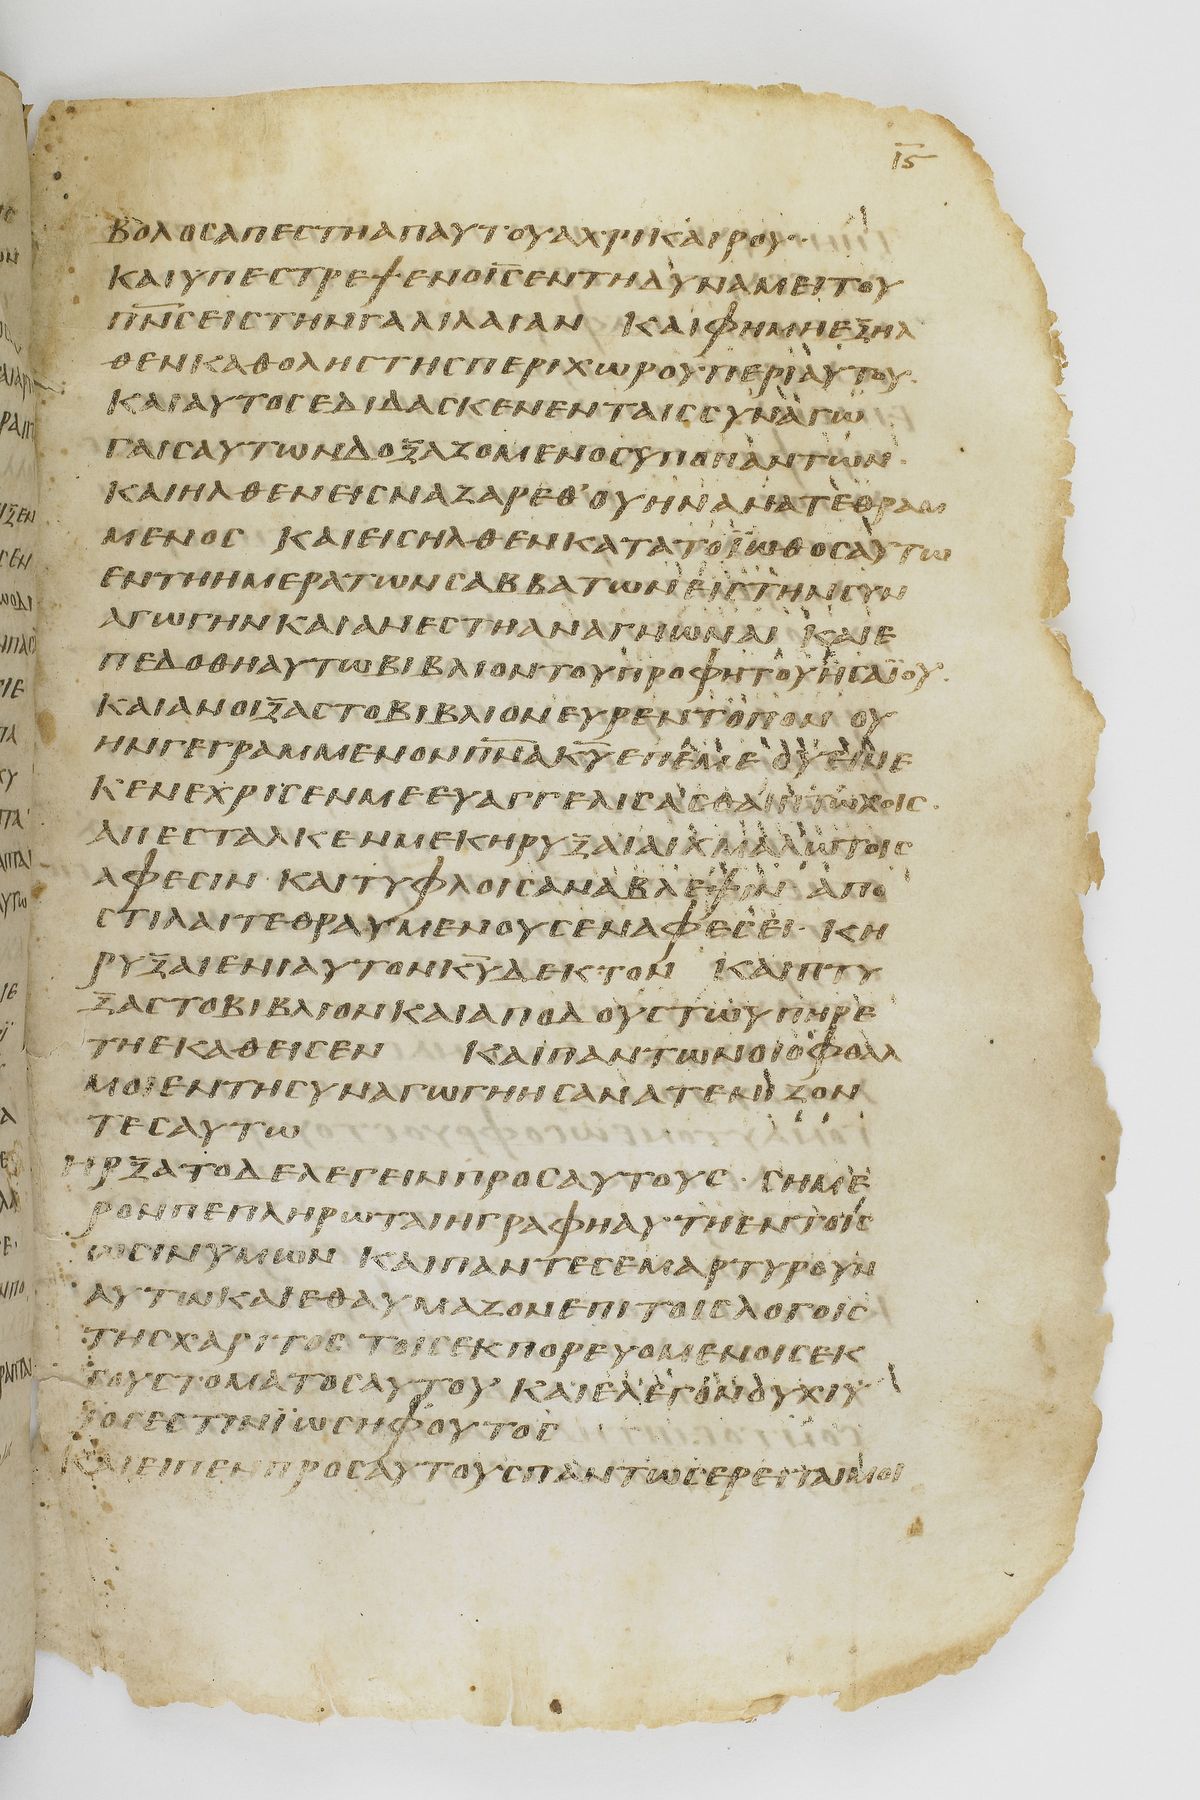 ΙϚ
ΒΟΛΟCΑΠΕCΤΗΑΠΑΥΤΟΥΑΧΡΙΚΑΙΡΟΥ·
ΚΑΙΥΠΕCΤΡΕΨΕΝΟΙ̅C̅ΕΝΤΗΔΥΝΑΜΕΙΤΟΥ
Π̅Ν̅C̅ΕΙCΤΗΝΓΑΛΙΛΑΙΑΝ ΚΑΙΦΗΜΗΕΞΗΛ
ΘΕΝΚΑΘΟΛΗCΤΗCΠΕΡΙΧΩΡΟΥΠΕΡΙΑΥΤΟΥ·
ΚΑΙΑΥΤΟCΕΔΙΔΑCΚΕΝΕΝΤΑΙCCΥΝΑΓΩ
ΓΑΙCΑΥΤΩΝΔΟΞΑΖΟΜΕΝΟCΥΠΟΠΑΝΤΩΝ·
ΚΑΙΗΛΘΕΝΕΙCΝΑΖΑΡΕΘ'ΟΥΗΝΑΝΑΤΕΘΡΑΜ
ΜΕΝΟC ΚΑΙΕΙCΗΛΘΕΝΚΑΤΑΤΟΪΩΘΟCΑΥΤΩ
ΕΝΤΗΗΜΕΡΑΤΩΝCΑΒΒΑΤΩΝΕΙCΤΗΝCΥΝ
ΑΓΩΓΗΝΚΑΙΑΝΕCΤΗΑΝΑΓΝΩΝΑΙ ΚΑΙΕ
ΠΕΔΟΘΗΑΥΤΩΒΙΒΛΙΟΝΤΟΥΠΡΟΦΗΤΟΥΗCΑΪΟΥ·
ΚΑΙΑΝΟΙΞΑCΤΟΒΙΒΛΙΟΝΕΥΡΕΝΤΟΠΟΝ ΟΥ
ΗΝΓΕΓΡΑΜΜΕΝΟΝΠ̅Ν̅Α̅Κ̅Υ̅ΕΠΕΜΕ ΟΥΕΙΝΕ
ΚΕΝΕΧΡΙCΕΝΜΕΕΥΑΓΓΕΛΙCΑCΘΑΙΠΤΩΧΟΙC·
ΑΠΕCΤΑΛΚΕΝΜΕΚΗΡΥΞΑΙΑΙΧΜΑΛΩΤΟΙC
ΑΦΕCΙΝ ΚΑΙΤΥΦΛΟΙCΑΝΑΒΛΕΨΙΝ ΑΠΟ
CΤΙΛΑΙΤΕΘΡΑΥΜΕΝΟΥCΕΝΑΦΕCΕΙ· ΚΗ
ΡΥΞΑΙΕΝΙΑΥΤΟΝΚ̅Υ̅ΔΕΚΤΟΝ ΚΑΙΠΤΥ
ΞΑCΤΟΒΙΒΛΙΟΝΚΑΙΑΠΟΔΟΥCΤΩΥΠΗΡΕ
ΤΗΕΚΑΘΕΙCΕΝ ΚΑΙΠΑΝΤΩΝΟΙΟΦΘΑΛ
ΜΟΙΕΝΤΗCΥΝΑΓΩΓΗΗCΑΝΑΤΕΝΙΖΟΝ
ΤΕCΑΥΤΩ
ΗΡΞΑΤΟΔΕΛΕΓΕΙΝΠΡΟCΑΥΤΟΥC· CΗΜΕ
ΡΟΝΠΕΠΛΗΡΩΤΑΙΗΓΡΑΦΗΑΥΤΗΕΝΤΟΙC
ΩCΙΝΥΜΩΝ ΚΑΙΠΑΝΤΕCΕΜΑΡΤΥΡΟΥΝ
ΑΥΤΩΚΑΙΕΘΑΥΜΑΖΟΝΕΠΙΤΟΙCΛΟΓΟΙC
ΤΗCΧΑΡΙΤΟC ΤΟΙCΕΚΠΟΡΕΥΟΜΕΝΟΙCΕΚ
ΤΟΥCΤΟΜΑΤΟCΑΥΤΟΥ ΚΑΙΕΛΕΓΟΝΟΥΧΙΥ
ΙΟCΕCΤΙΝΪΩCΗΦΟΥΤΟC
ΚΑΙΕΙΠΕΝΠΡΟCΑΥΤΟΥCΠΑΝΤΩCΕΡΕΙΤΑΙΜΟΙ